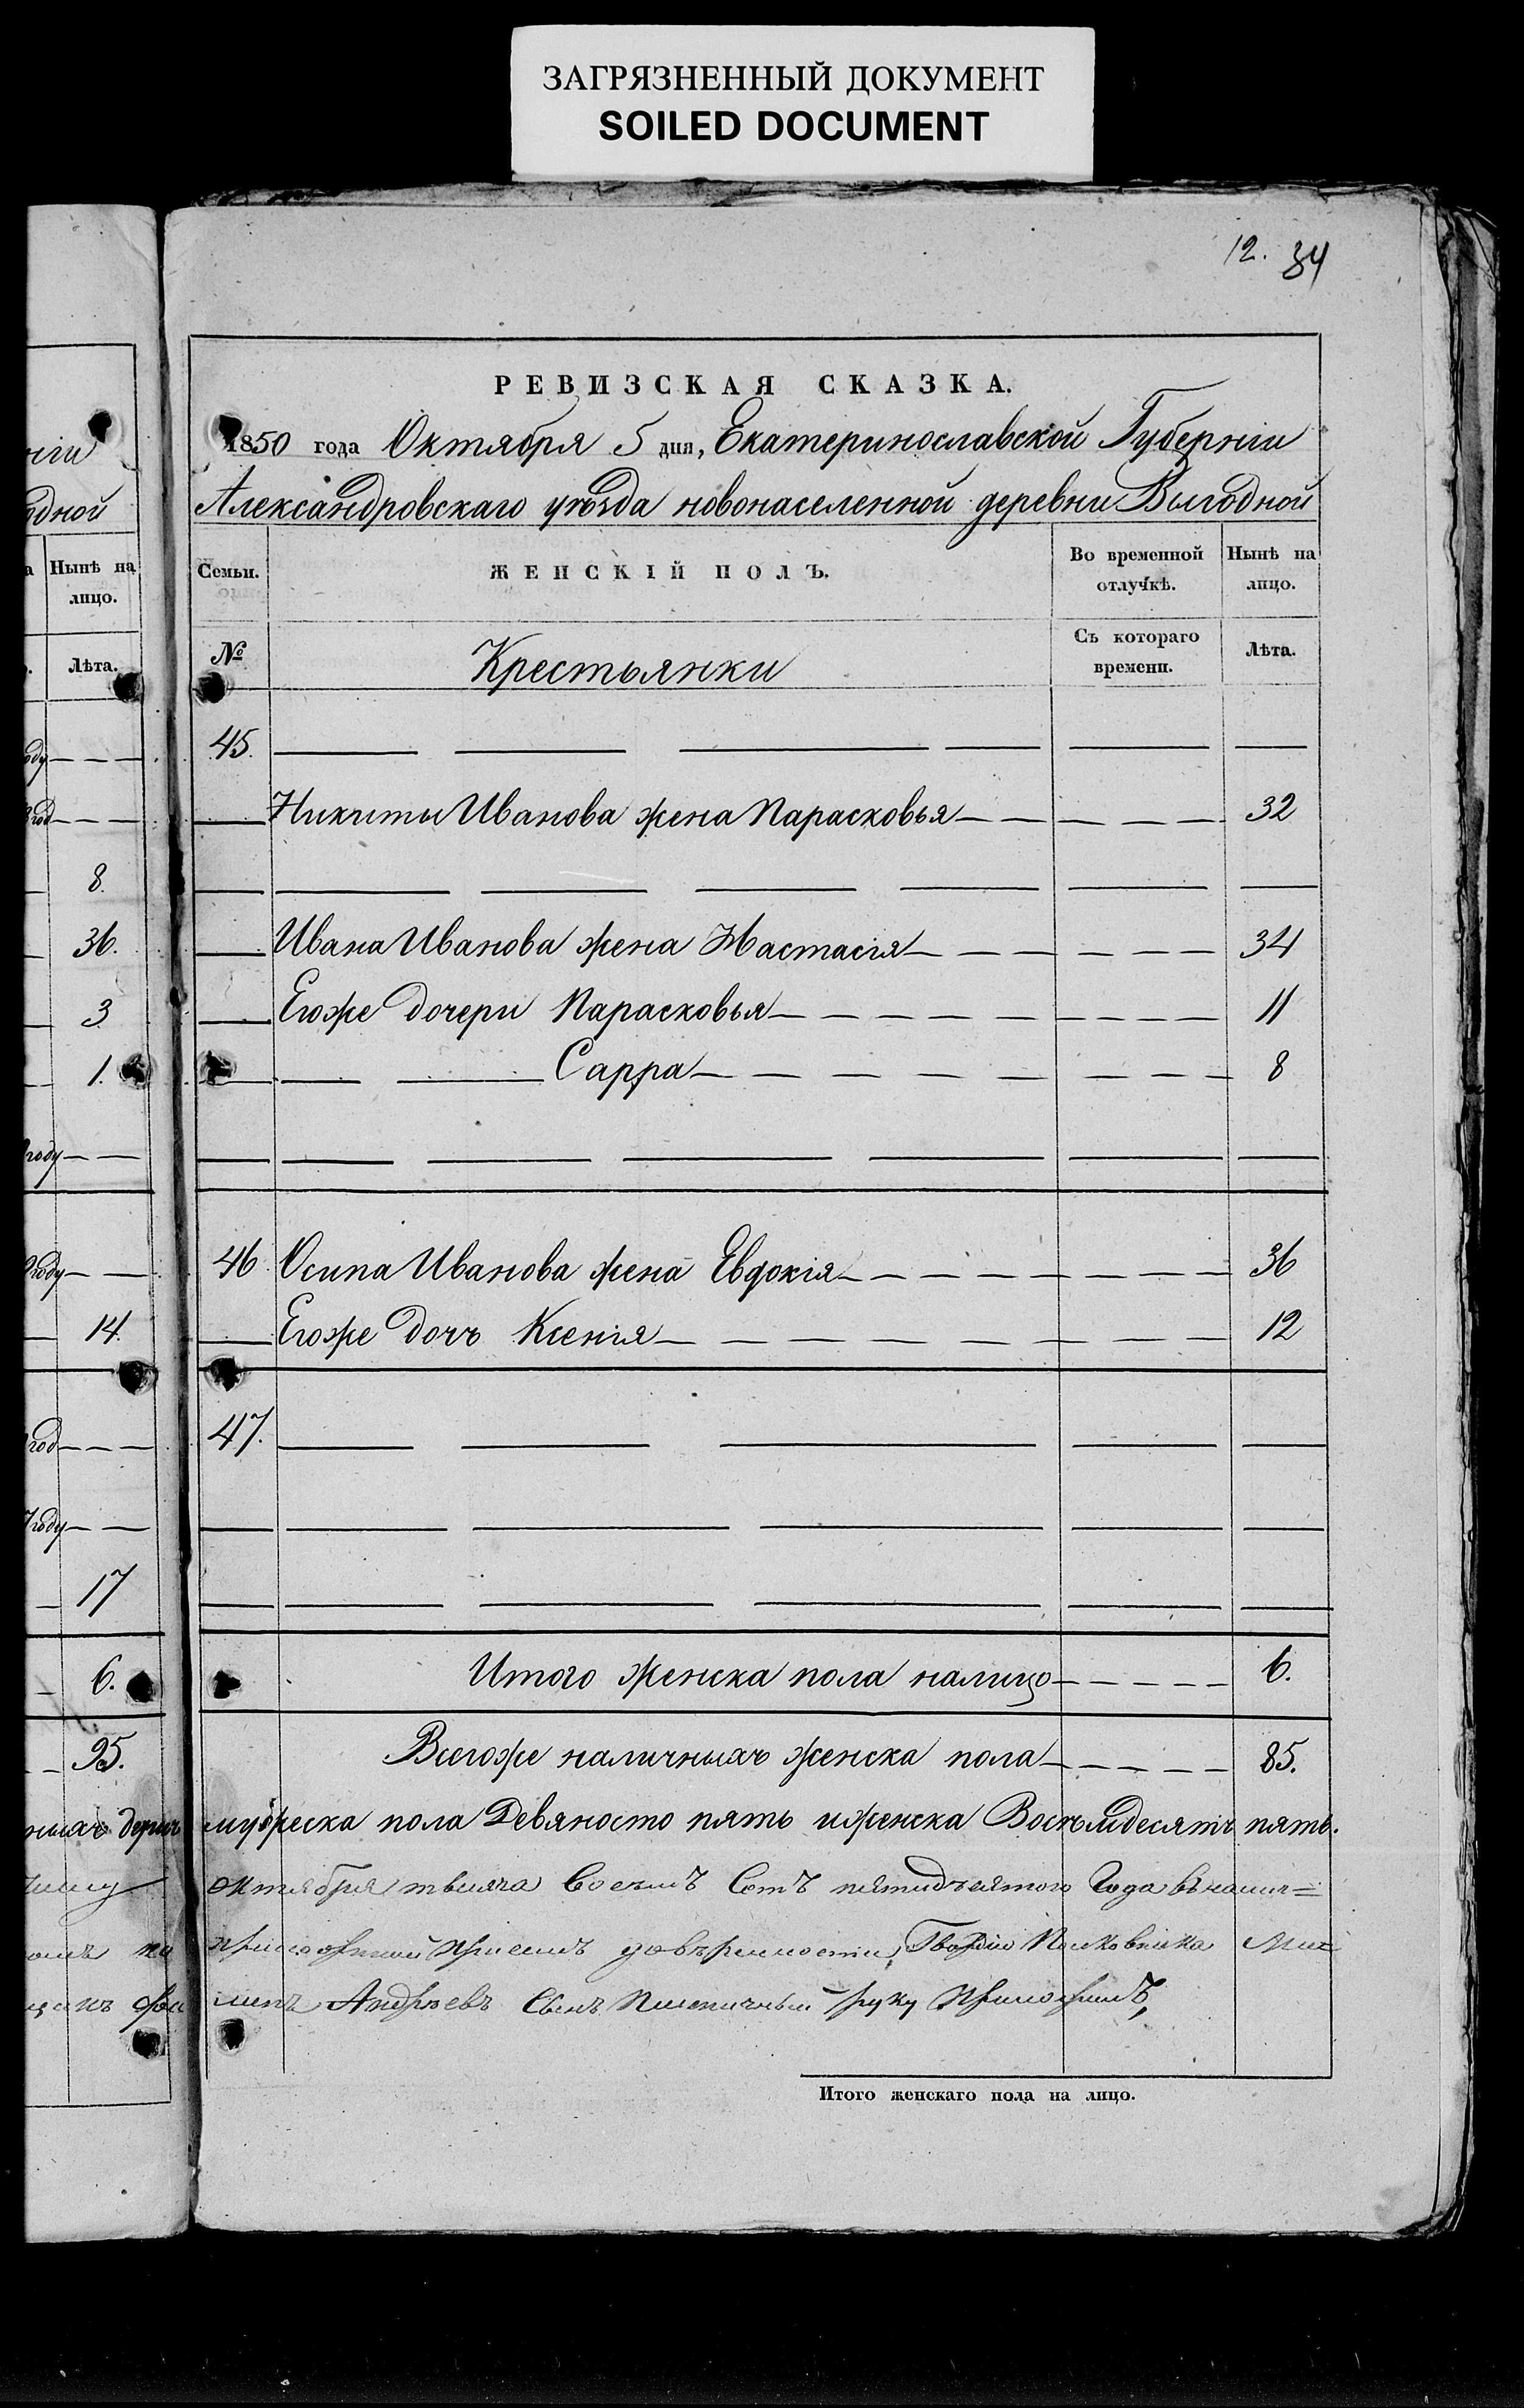 ЗАГРЯЗНЕННЫЙ ДОКУМЕНТ
SOILED DOCUMENT
12. 34
РЕВИЗСКАЯ СКАЗКА.
1850 года Октября 5 дня, Екатеринославской Губерніи
Александровскаго уѣзда новонаселенной деревни Выгодной
Семьи. ЖЕНСКІЙ ПОЛЪ. Во временной отлучкѣ. Нынѣ на лицо.
№ Крестьянки Съ котораго времени. Лѣта.
45.
Никиты Иванова жена Парасковья 32
Ивана Иванова жена Настасія 34
Егоже дочери Парасковья 11
Сарра 8
46. Осипа Иванова жена Евдокія 36
Егоже дочь Ксенія 12
47.
Итого женска пола налицо 6.
Всегоже наличныхъ женска пола 85.
мужеска пола Девяносто пять и женска Восемьдесятъ пять.
октября тысяча Восемъ Сотъ пятидесятого Года
доверенности, Гвардіи Полковника
Андреевъ Сынъ Пшеничный руку приложилъ,
Итого женскаго пола на лицо.
ніи
одной
Нынѣ на
лицо.
Лѣта.
оду
год
8.
36.
3
1.
году
году
14.
год
году
17
6.
95.